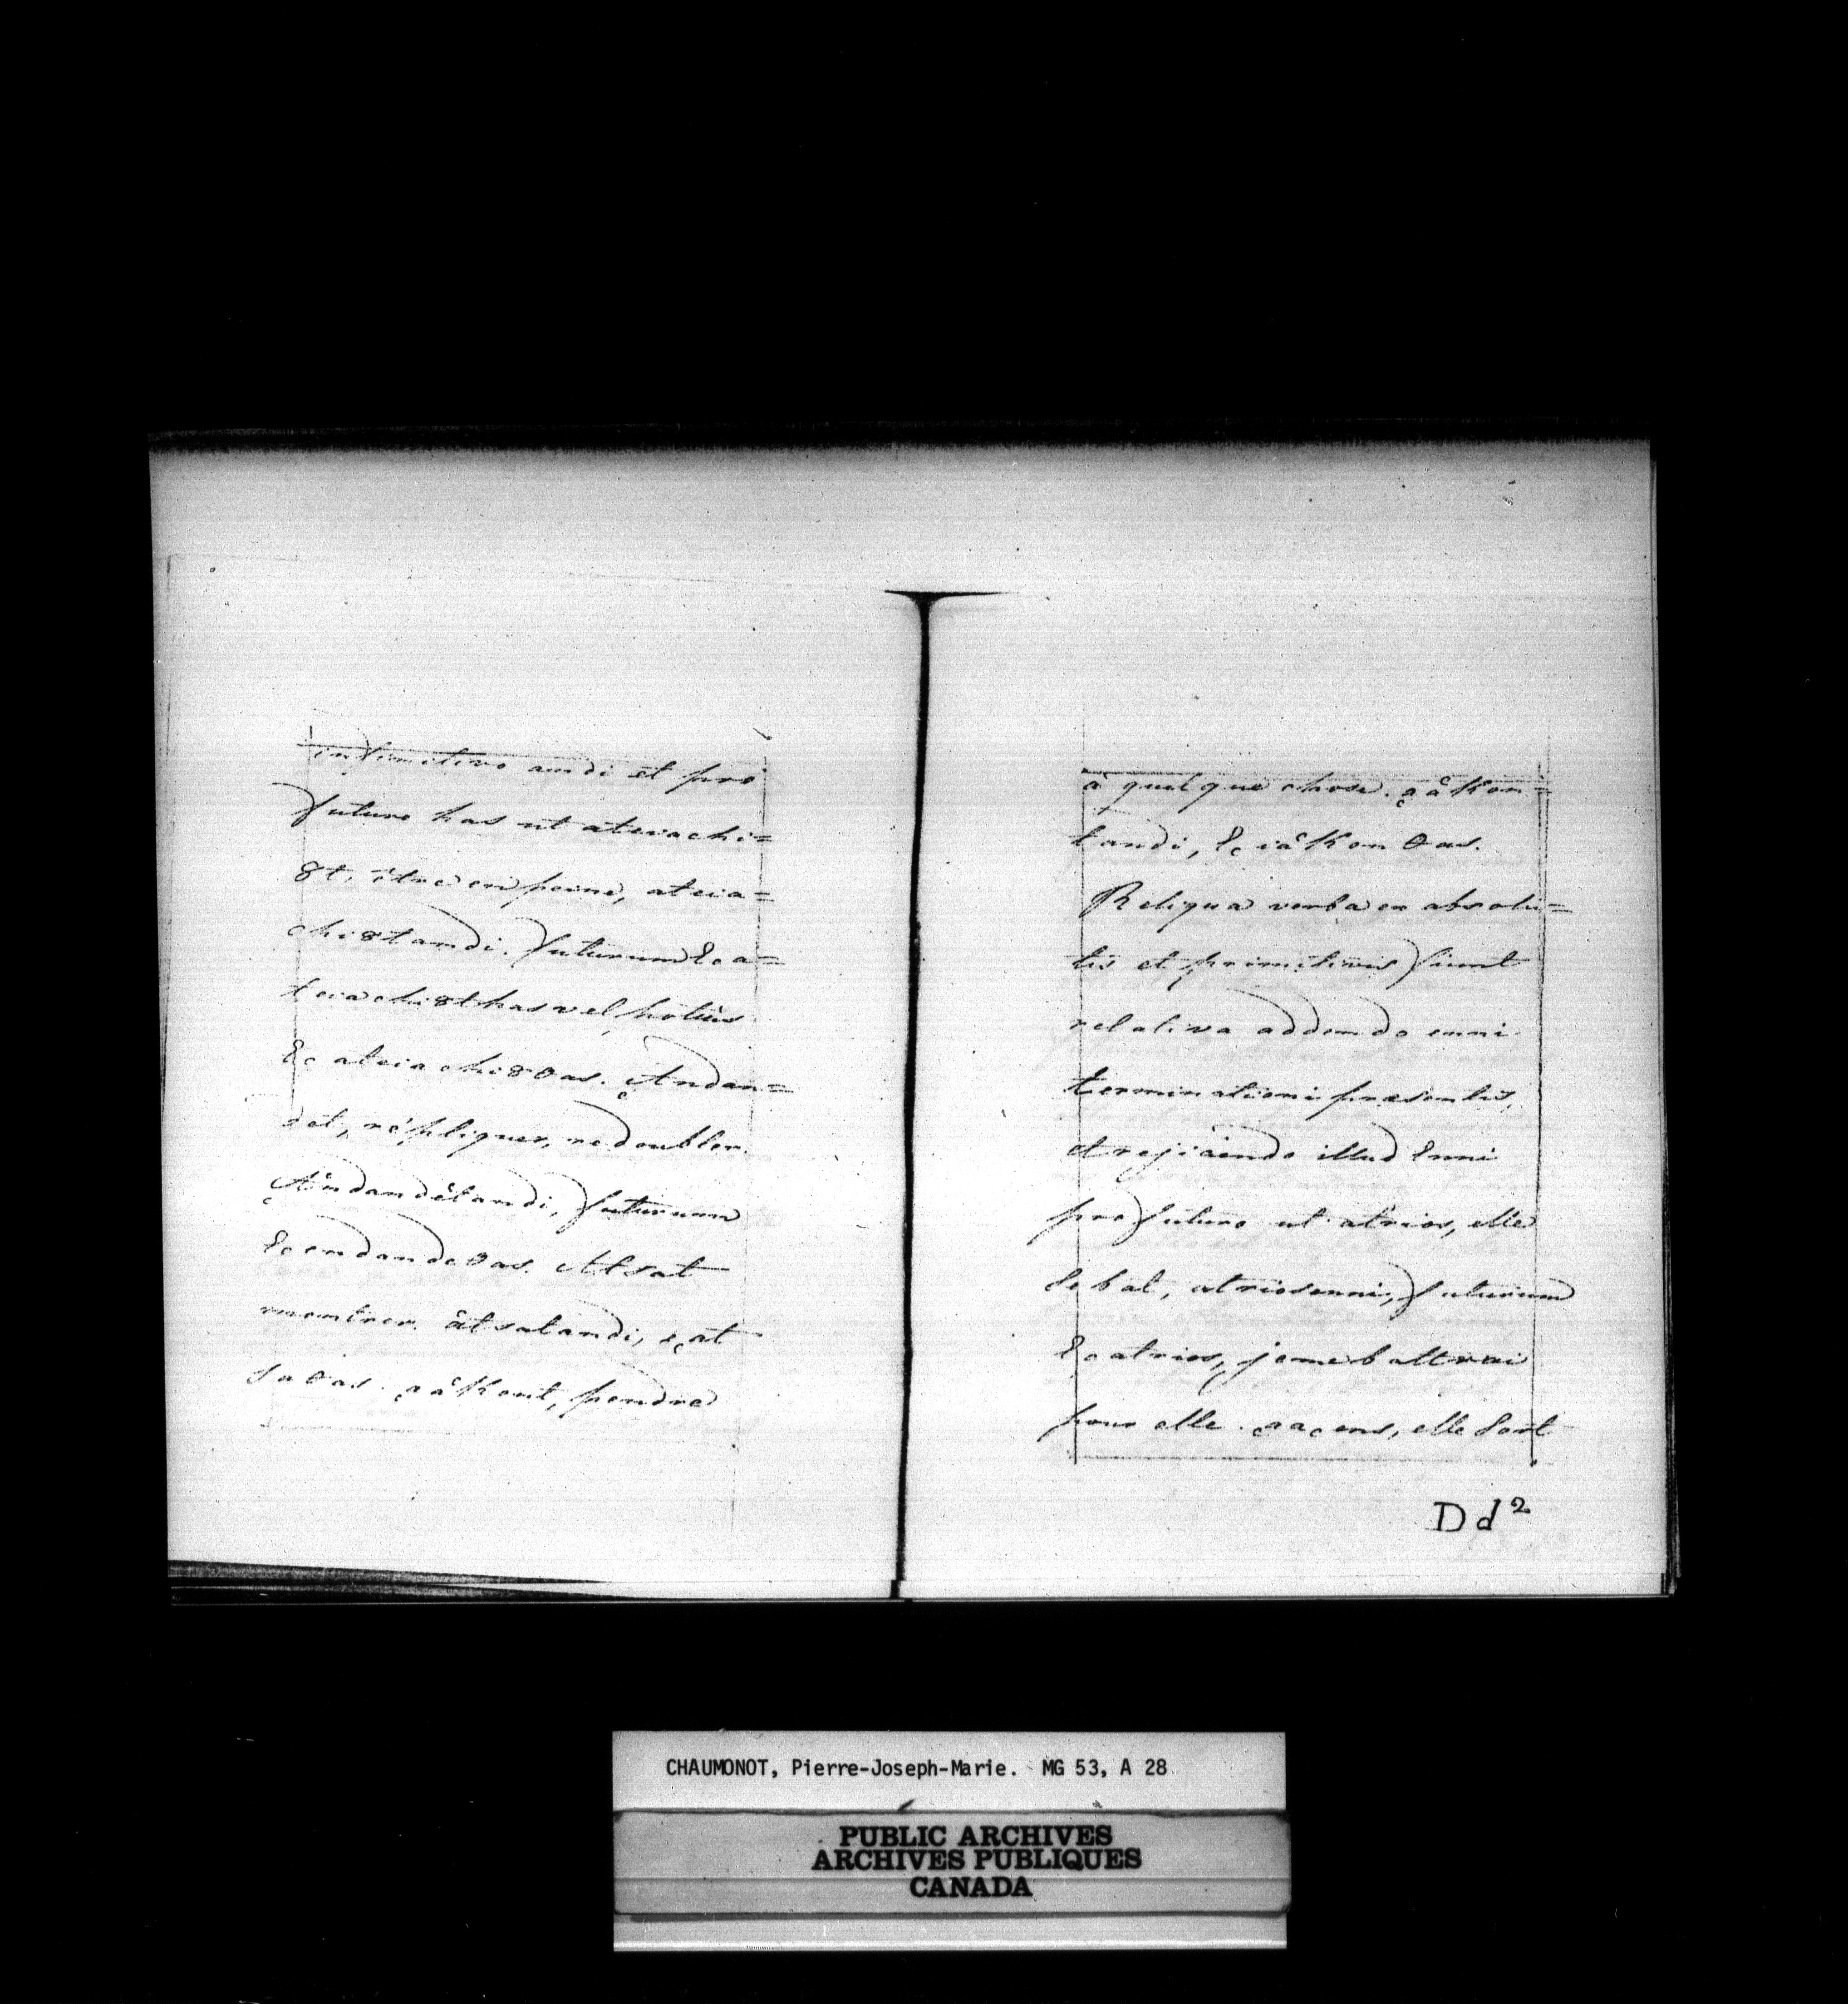 infinitivo andi et pro
futuro has ut ateiachi=
8t, être en peine, ateia=
chi8tandi. futurum Eca=
teiachi8thas vel potiùs
Ec ateiachi8θas. Andan=
det, répliquer, redoubler.
Andandetandi, futurum
Ecendandeθas. Atsat
montrer. âtsatandi, eçat
saθas. ąâKont, pendre
à quelque chose. ąâKon=
tandi, EciâKonθas.
Reliqua verba ex absolu=
tis et primitivis fiunt
relativa addendo enni
terminationi præsentis,
et rejiciendo illud Enni
pro futuro ut atrios, elle
se bat, atriosenni, futurum
Ecatrios, je me battrai
pour elle. ąaçens, elle sort
Dd²
CHAUMONOT, Pierre-Joseph-Marie. MG 53, A 28
PUBLIC ARCHIVES
ARCHIVES PUBLIQUES
CANADA